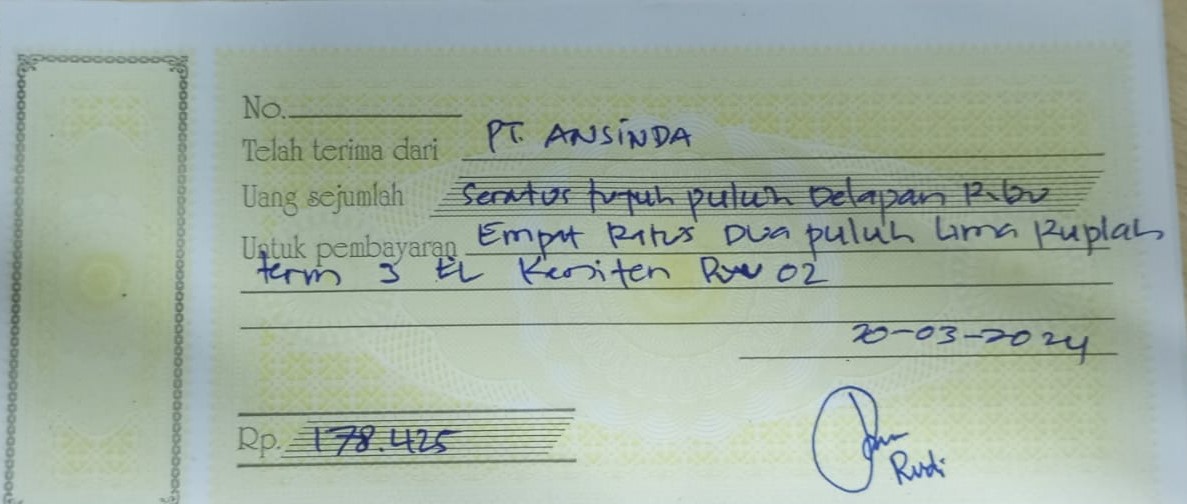 No.
Telah terima dari PT. ANSINDA
Uang sejumlah Seratus tujuh puluh Delapan Ribu
Untuk pembayaran Empat Ratus Dua puluh Lima Rupiah
term 3 EL Kersiten RW 02
20-03-2024
Rp. 178.425
Rudi